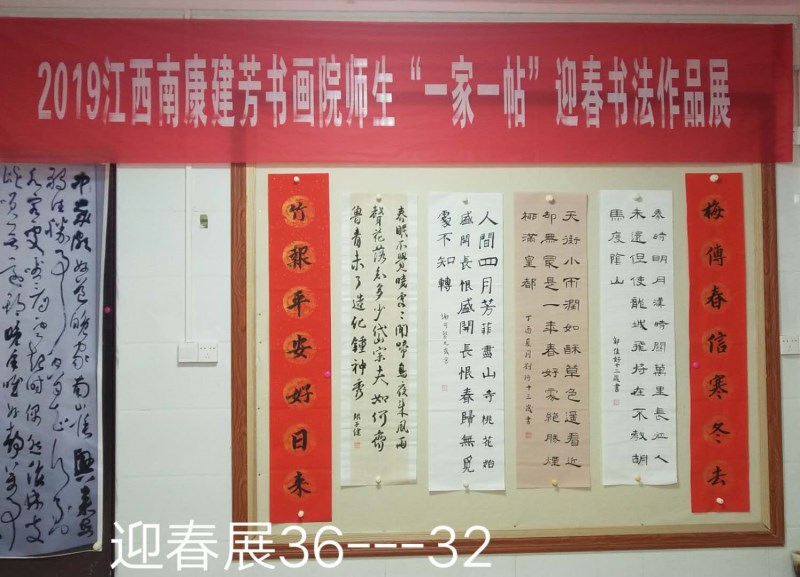 2019江西南康建芳书画院师生“一家一帖”迎春书法作品展
梅傳春信寒冬去
秦時明月漢時關萬里長征人
未還但使龍城飛将在不教胡
馬度陰山
天街小雨潤如酥草色遥看近
却無最是一年春好處絶勝煙
滿皇都
人間四月芳菲盡山寺桃花始
盛開長恨盛開長恨春歸無覓
處不知轉
春眠不覺曉處〻聞啼鳥夜来風雨
聲花落知多少岱宗夫如何齊
魯青未了造化鍾神秀
竹報平安好日来
中歲頗好道晚家南山陲興来每
迎春展36---32